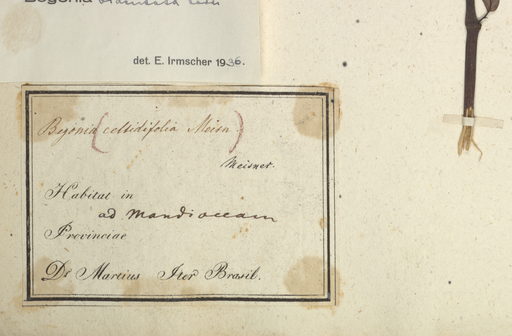 Begonia
det. E. Irmscher 1936.
Begonia (celtidifolia Meisn)
Meisner.
Habitat in
ad Mandioccam
Provinciae
Dr Martius Iter Brasil.